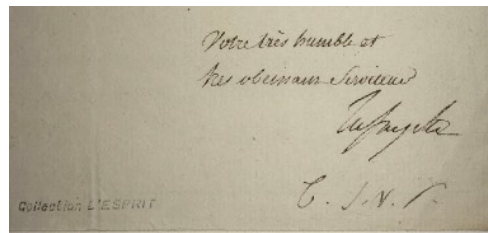 Votre très humble et
tres obeissant Serviteur
Lafayette
C. I. N. P.
Collection L'ESPRIT